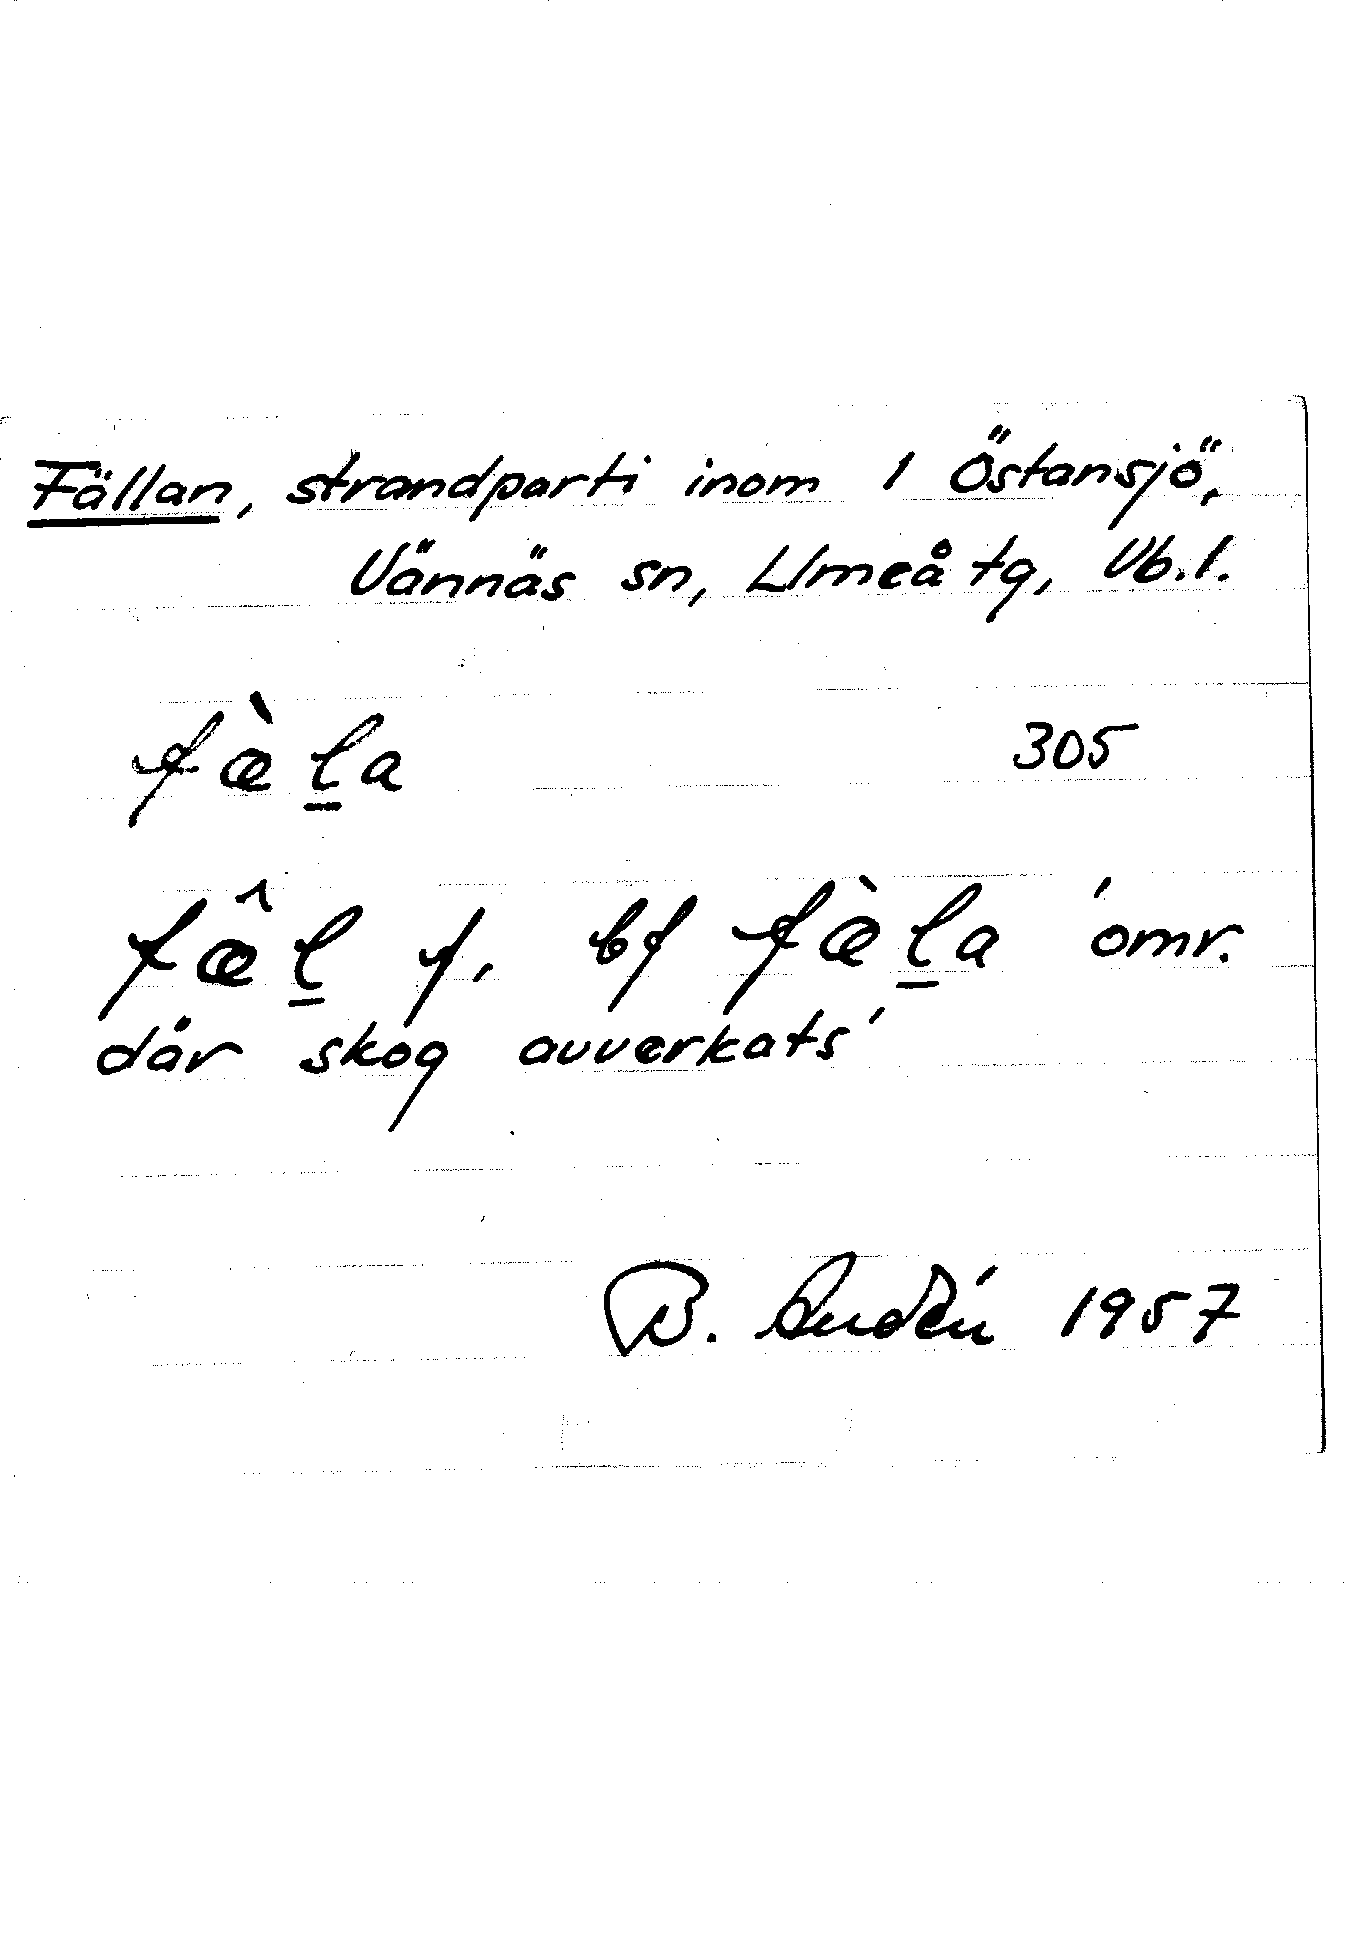 Fällan, strandparti inom 1 Östansjö,
Vännäs sn, Umeå tg, Vb.l.
fæ̀l̲a 305
fæ̂l̲ f. bf fæ̀l̲a 'omr.
där skog avverkats'
B. Audén 1957